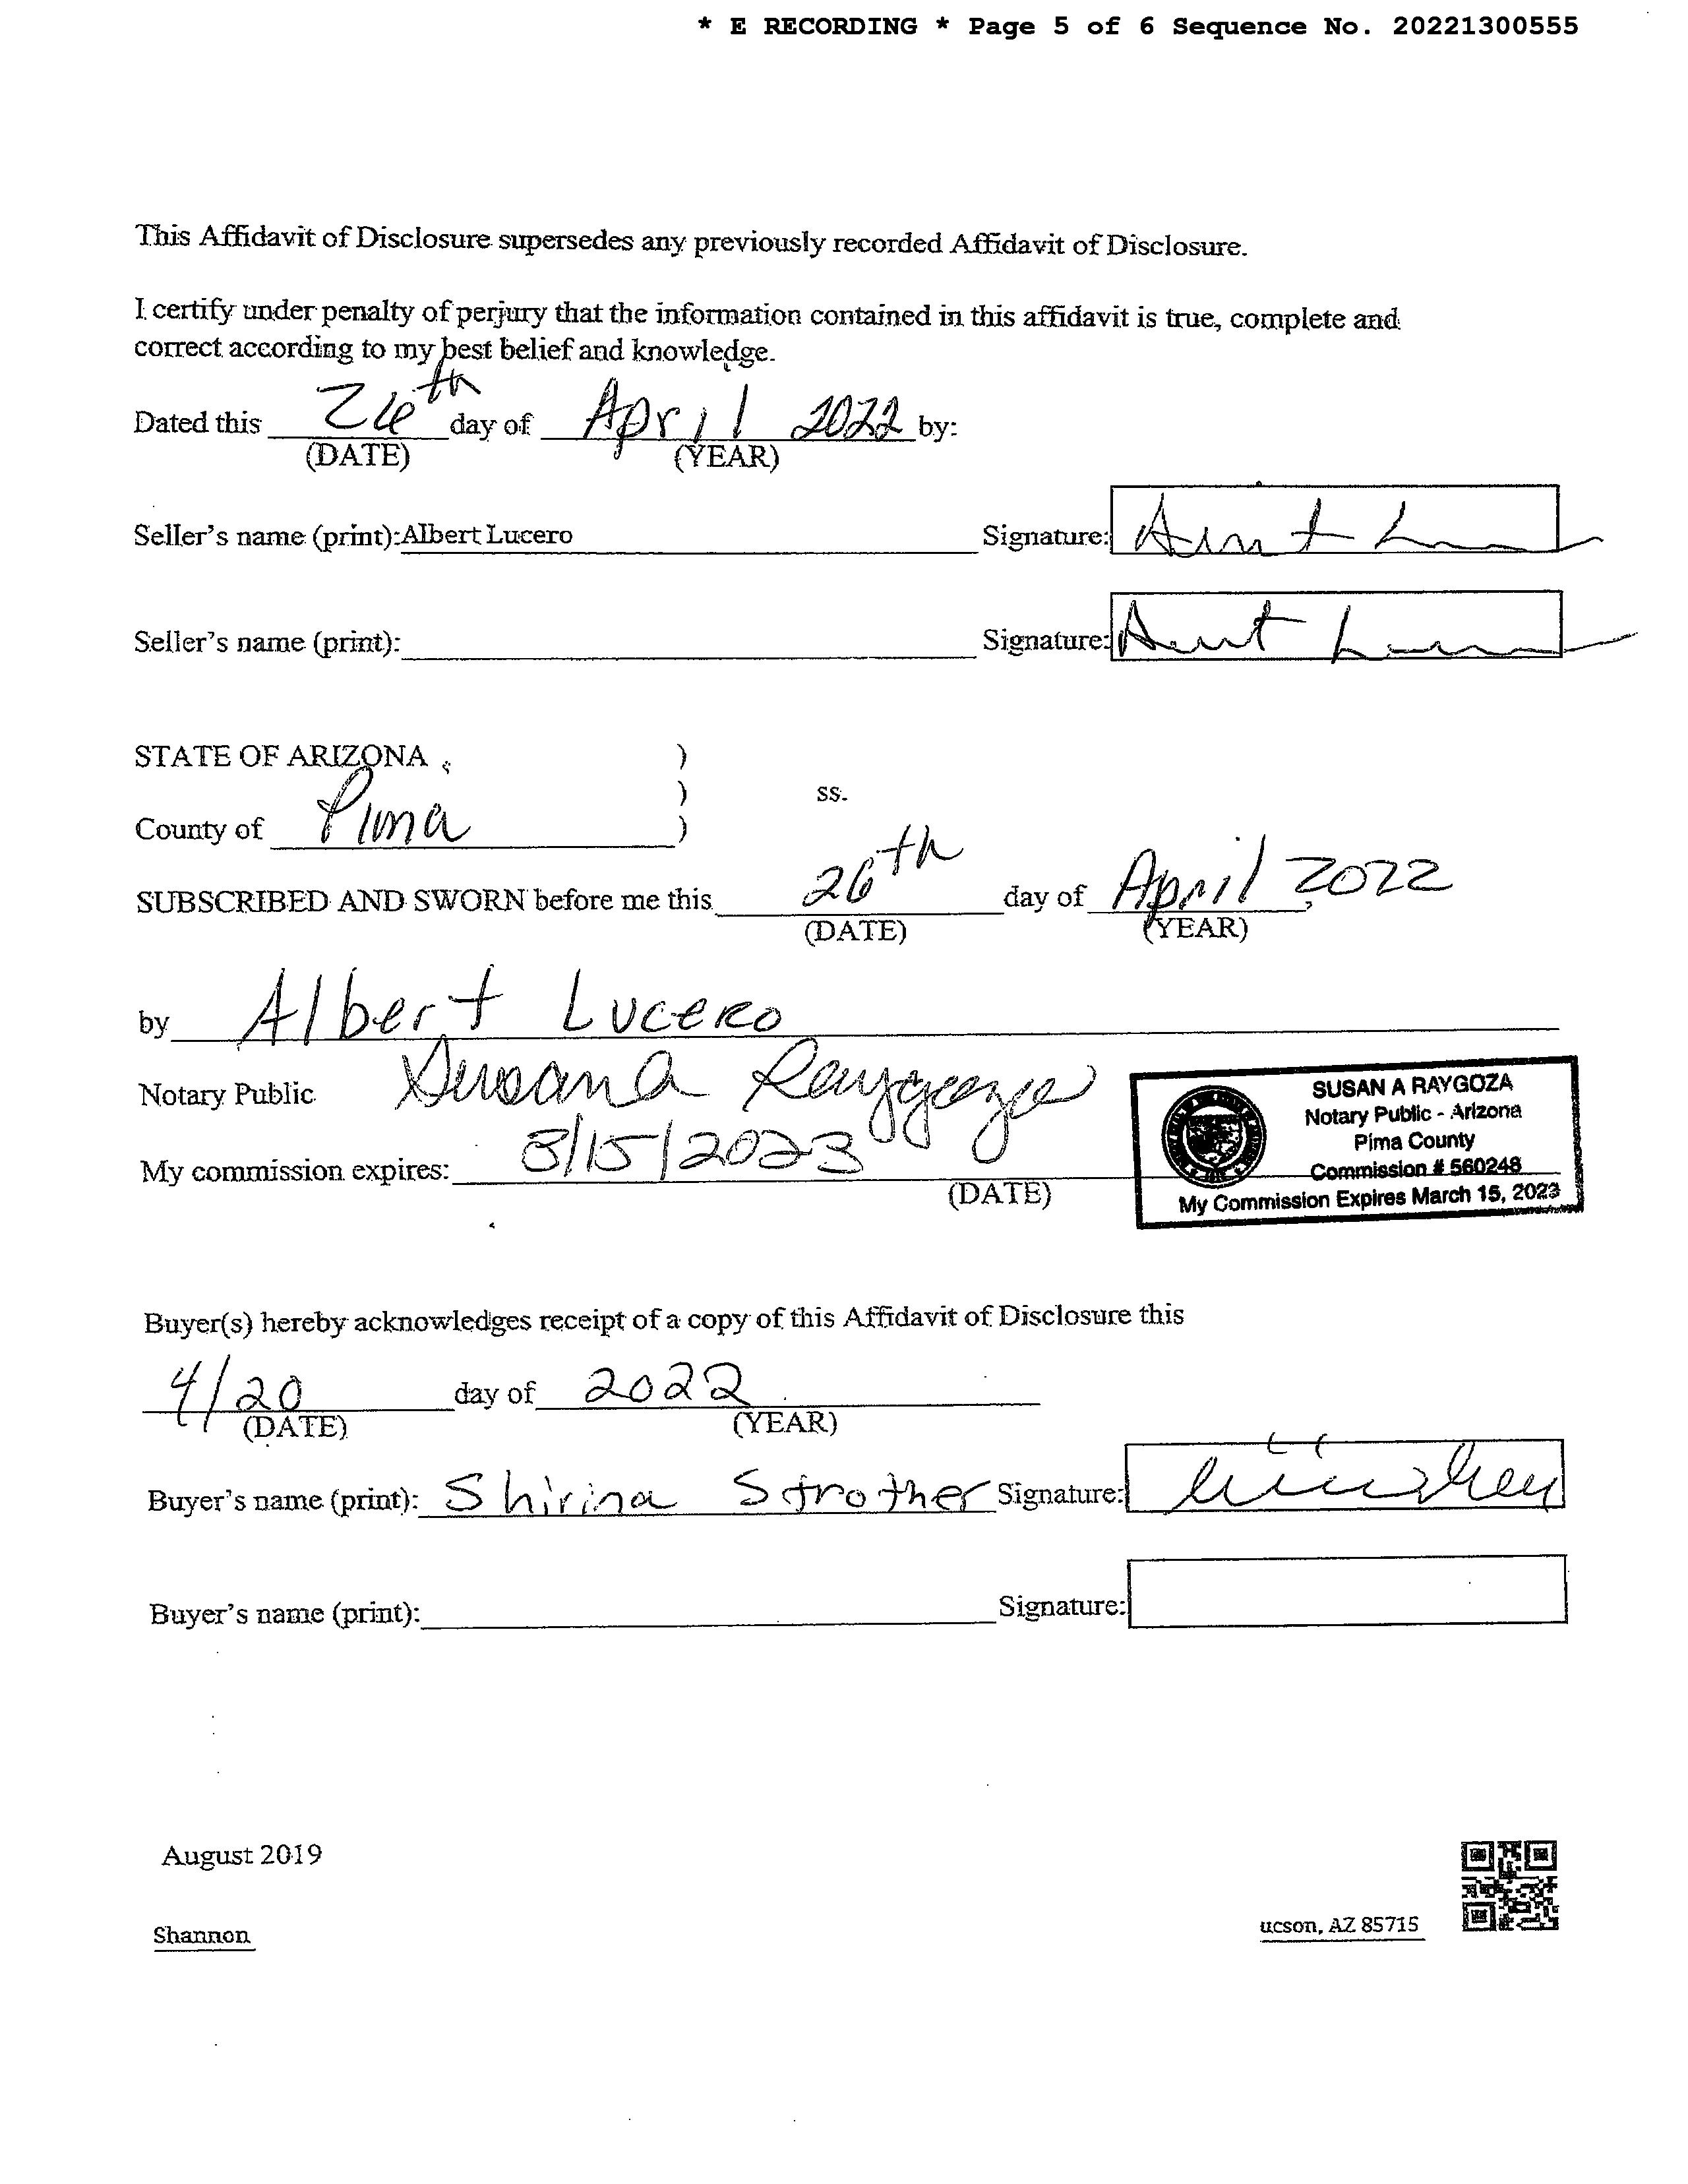 * E RECORDING * Page 5 of 6 Sequence No. 20221300555
This Affidavit of Disclosure supersedes any previously recorded Affidavit of Disclosure.
I certify under penalty of perjury that the information contained in this affidavit is true, complete and
correct according to my best belief and knowledge.
Dated this 26th day of April 2022 by:
(DATE) (YEAR)
Seller's name (print):Albert Lucero Signature:
Seller's name (print): Signature:
STATE OF ARIZONA )
) ss.
County of Pima )
SUBSCRIBED AND SWORN before me this 26th day of April, 2022
(DATE) (YEAR)
by Albert Lucero
Notary Public Susan A Raygoza
My commission expires: 3/15/2023
(DATE)
SUSAN A RAYGOZA
Notary Public - Arizona
Pima County
Commission # 560248
My Commission Expires March 15, 2023
Buyer(s) hereby acknowledges receipt of a copy of this Affidavit of Disclosure this
4/20 day of 2022
(DATE) (YEAR)
Buyer's name (print): Shirina Strother Signature:
Buyer's name (print): Signature:
August 2019
Shannon ucson, AZ 85715